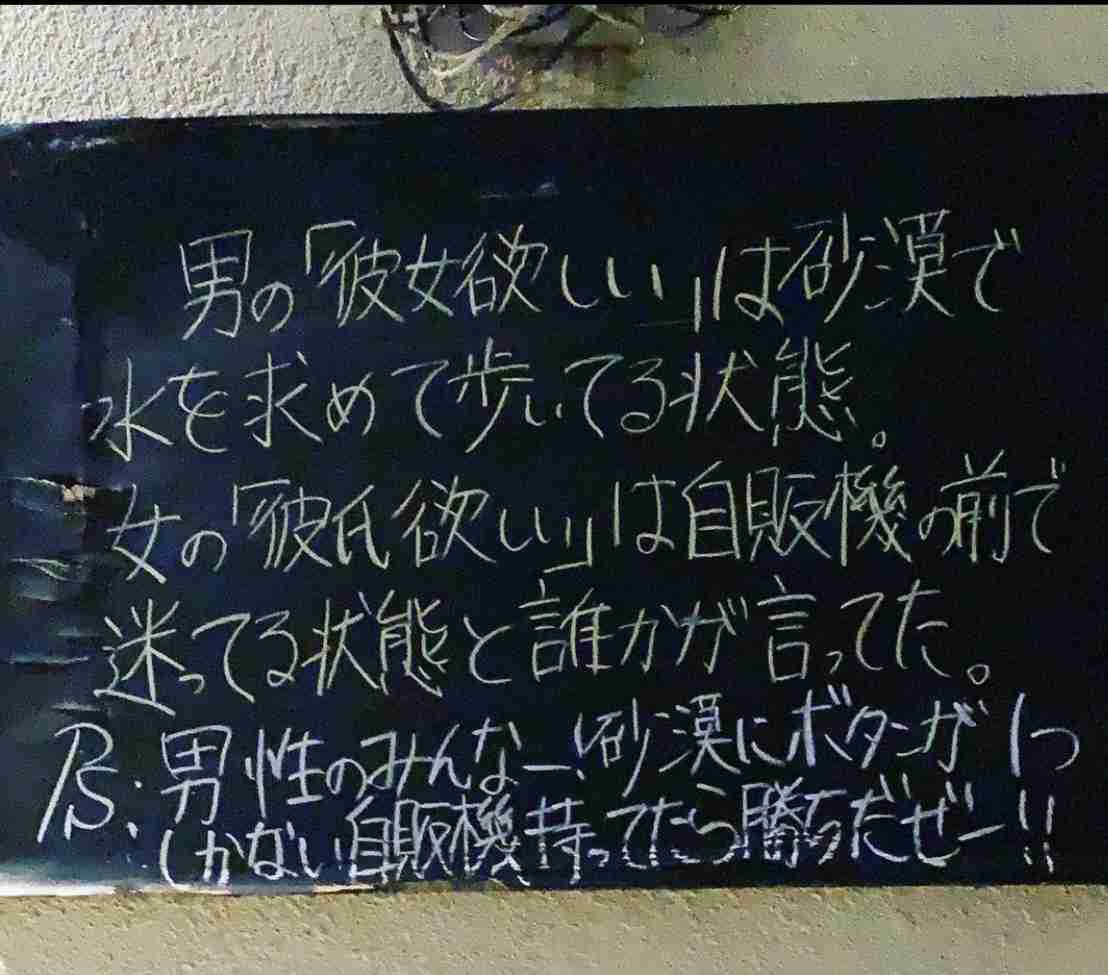 男の「彼女欲しい」は砂漠で
水を求めて歩いてる状態。
女の「彼氏欲しい」は自販機の前で
迷ってる状態と誰かが言ってた。
P.S:男性のみんなー!砂漠にボタンが1つ
しかない自販機持ってたら勝ちだぜー!!